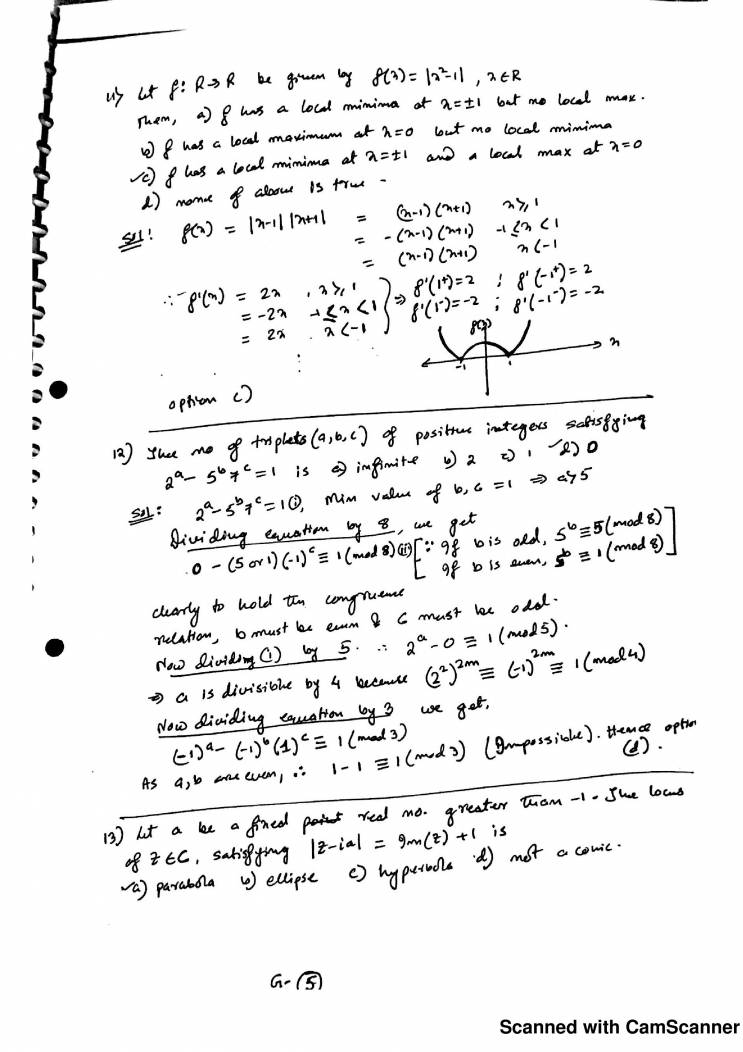 11) Let f: R→R be given by f(x) = |x²-1| , x∈R
Then, a) f has a local minima at x=±1 but no local max.
b) f has a local maximum at x=0 but no local minima
✓c) f has a local minima at x=±1 and a local max at x=0
d) none of above is true -
Sol: f(x) = |x-1| |x+1| = (x-1)(x+1) x≥1
= -(x-1)(x+1) -1≤x<1
= (x-1)(x+1) x<-1
∴ f'(x) = 2x , x≥1 ⇒ f'(1⁺)=2 ; f'(-1⁺)=2
= -2x -1≤x<1 f'(1⁻)=-2 ; f'(-1⁻)=-2
= 2x x<-1
f(x)
x
-1 1
option c)
12) The no of triplets (a,b,c) of positive integers satisfying
2ᵃ - 5ᵇ7ᶜ = 1 is a) infinite b) 2 c) 1 ✓d) 0
Sol: 2ᵃ-5ᵇ7ᶜ=1 (i), Min value of b,c =1 ⇒ a>5
Dividing equation by 8, we get
0 - (5 or 1)(-1)ᶜ ≡ 1 (mod 8) (ii) [∵ If b is odd, 5ᵇ≡5(mod 8)
If b is even, 5ᵇ ≡ 1 (mod 8)]
clearly to hold the congruence
relation, b must be even & c must be odd.
Now dividing (1) by 5. ∴ 2ᵃ-0 ≡ 1 (mod 5).
⇒ a is divisible by 4 because (2²)²ᵐ ≡ (-1)²ᵐ ≡ 1 (mod 4)
Now dividing equation by 3 we get,
(-1)ᵃ - (-1)ᵇ(1)ᶜ ≡ 1 (mod 3)
As a,b are even, ∴ 1-1 ≡ 1 (mod 3) (Impossible). Hence option
(d).
13) Let a be a fixed point real no. greater than -1. The locus
of z∈C, satisfying |z-ia| = Im(z)+1 is
✓a) parabola b) ellipse c) hyperbola d) not a conic.
G-(5)
Scanned with CamScanner